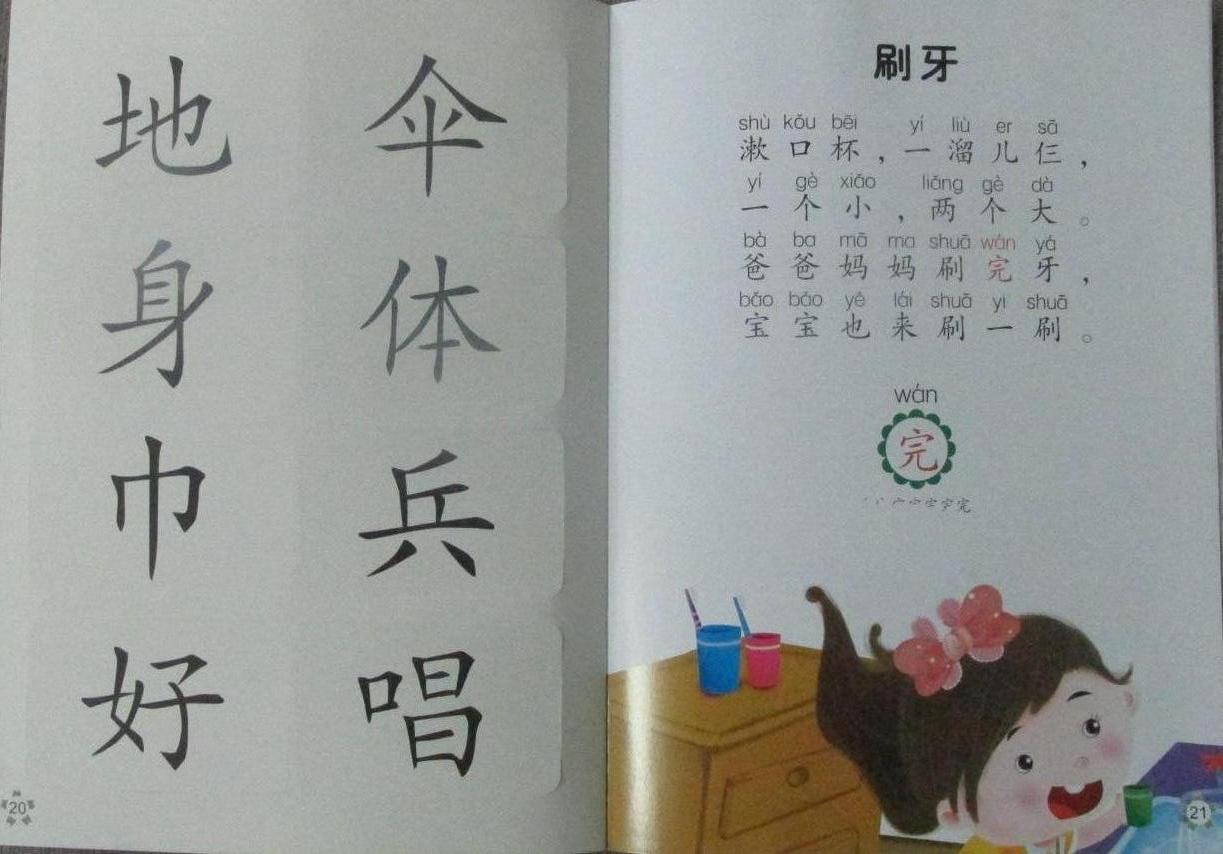 地 伞
身 体
巾 兵
好 唱
20
刷牙
shù kǒu bēi yí liù er sā
漱口杯，一溜儿仨，
yí gè xiǎo liǎng gè dà
一个小，两个大。
bà ba mā ma shuā wán yá
爸爸妈妈刷完牙，
bǎo bǎo yě lái shuā yi shuā
宝宝也来刷一刷。
wán
完
21